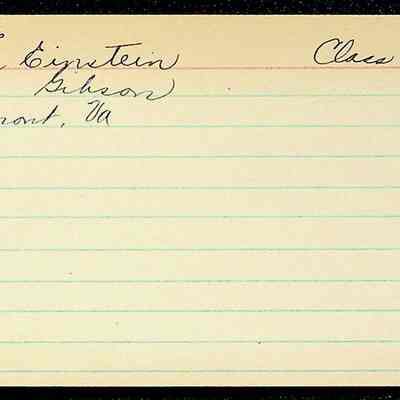 Einstein Class
Gibson)
mont, Va